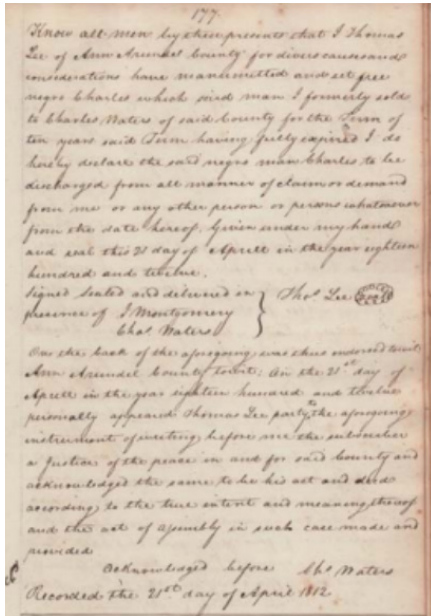 177
Know all men by these presents that I Thomas
Lee of Ann Arundel County for divers causes and
considerations have manumitted and set free
negro Charles which said man I formerly sold
to Charles Waters of said County for the Term of
ten years said Term having fully expired I do
hereby declare the said negro man Charles to be
discharged from all manner of claim or demand
from me or any other person or persons whatsoever
from the date hereof, Given under my hand
and seal this 21 day of Aprill in the year eighteen
hundred and twelve.
Signed Sealed and delivered in } Thos Lee seal
presence of J Montgomery
Chas Waters
On the back of the aforegoing was thus endorsed to wit
Ann Arundel County to wit: On the 21st day of
Aprill in the year eighteen hundred and twelve
personally appeared Thomas Lee party to the aforegoing
instrument of writing before me the subscriber
a Justice of the peace in and for said County and
acknowledged the same to be his act and deed
according to the true intent and meaning thereof
and the act of assembly in such case made and
provided
acknowledged before Chs Waters
Recorded the 21st day of April 1812